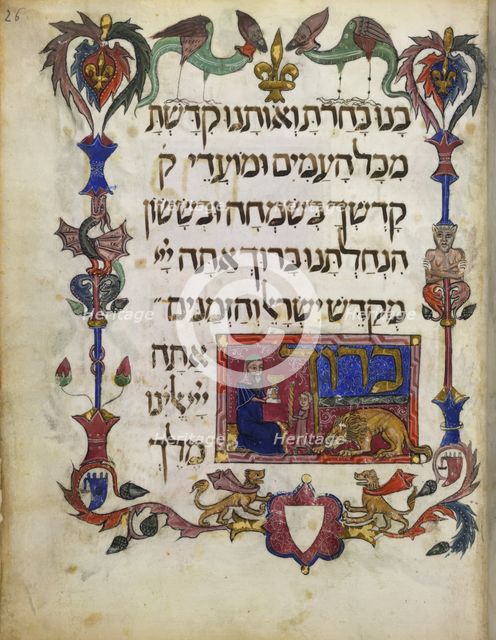 26
בנו בחרת ואותנו קדשת
מכל העמים ומועדי ק
קדשך בשמחה ובששון
הנחלתנו ברוך אתה יי
מקדש ישראל והזמנים
ברוך
אתה
יי אלהינו
מלך
Heritage
Heritage
Heritage
Heritage